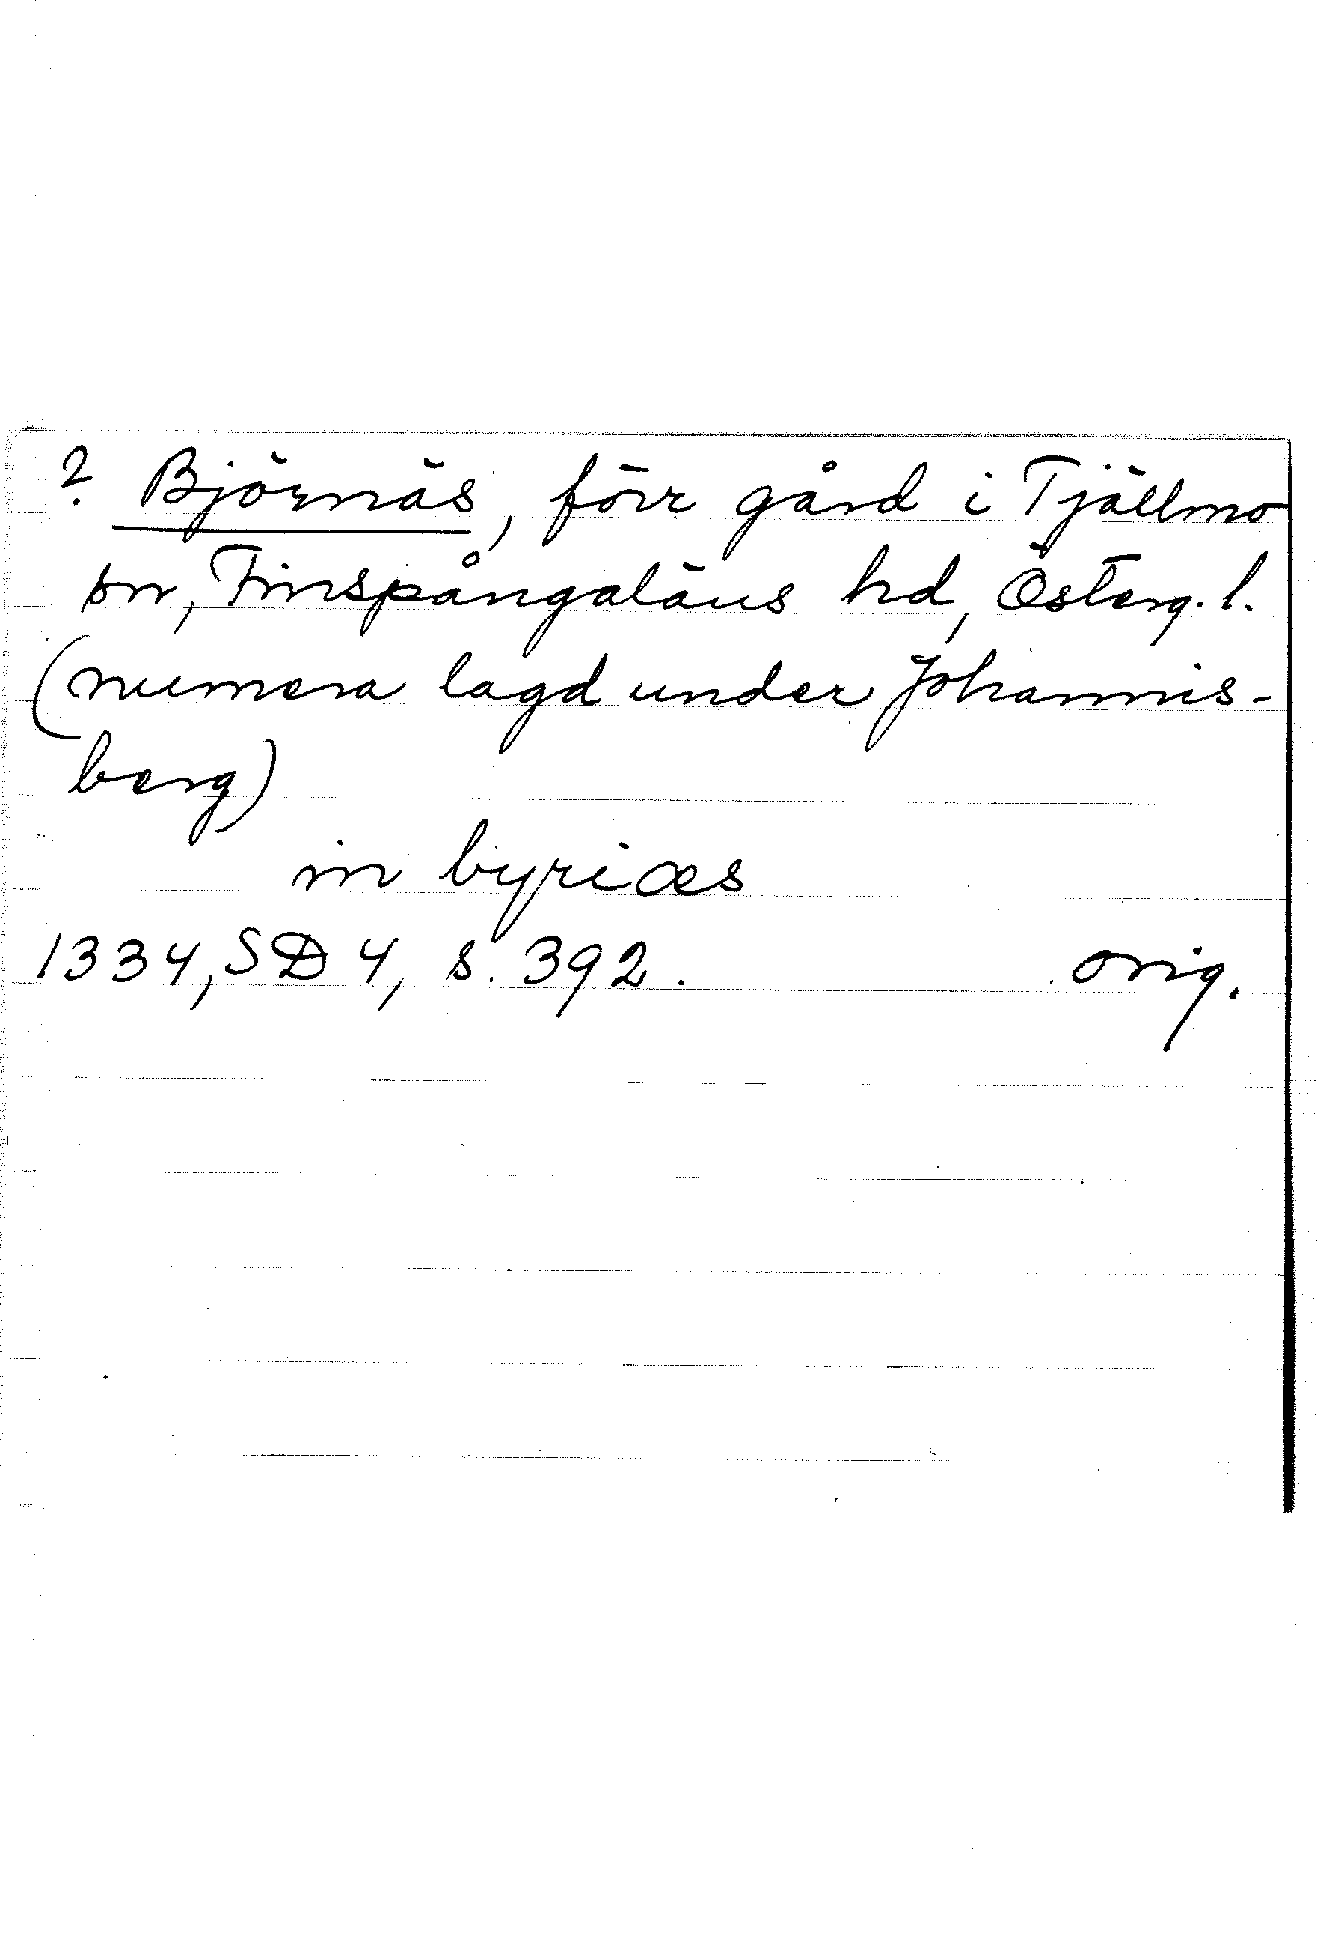 ? Björnäs, förr gård i Tjällmo
sn, Finspångaläns hd, Österg. l.
(numera lagd under Johannis-
berg)
in byriæs
1334, SD 4, s. 392. orig.